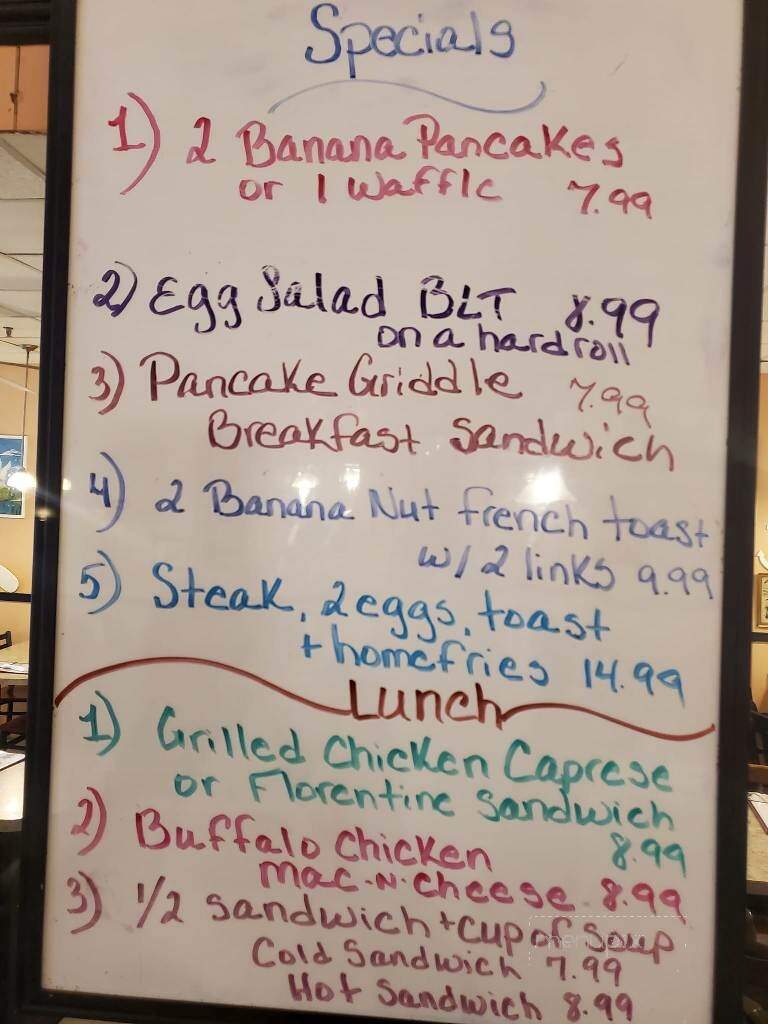 Specials
1) 2 Banana Pancakes
or 1 Waffle 7.99
2) Egg Salad BLT 8.99
on a hard roll
3) Pancake Griddle 7.99
Breakfast Sandwich
4) 2 Banana Nut french toast
w/ 2 links 9.99
5) Steak, 2 eggs, toast
+ homefries 14.99
Lunch
1) Grilled Chicken Caprese
or Florentine Sandwich
8.99
2) Buffalo Chicken
Mac-N-Cheese 8.99
3) 1/2 Sandwich + cup of Soup
Cold Sandwich 7.99
Hot Sandwich 8.99